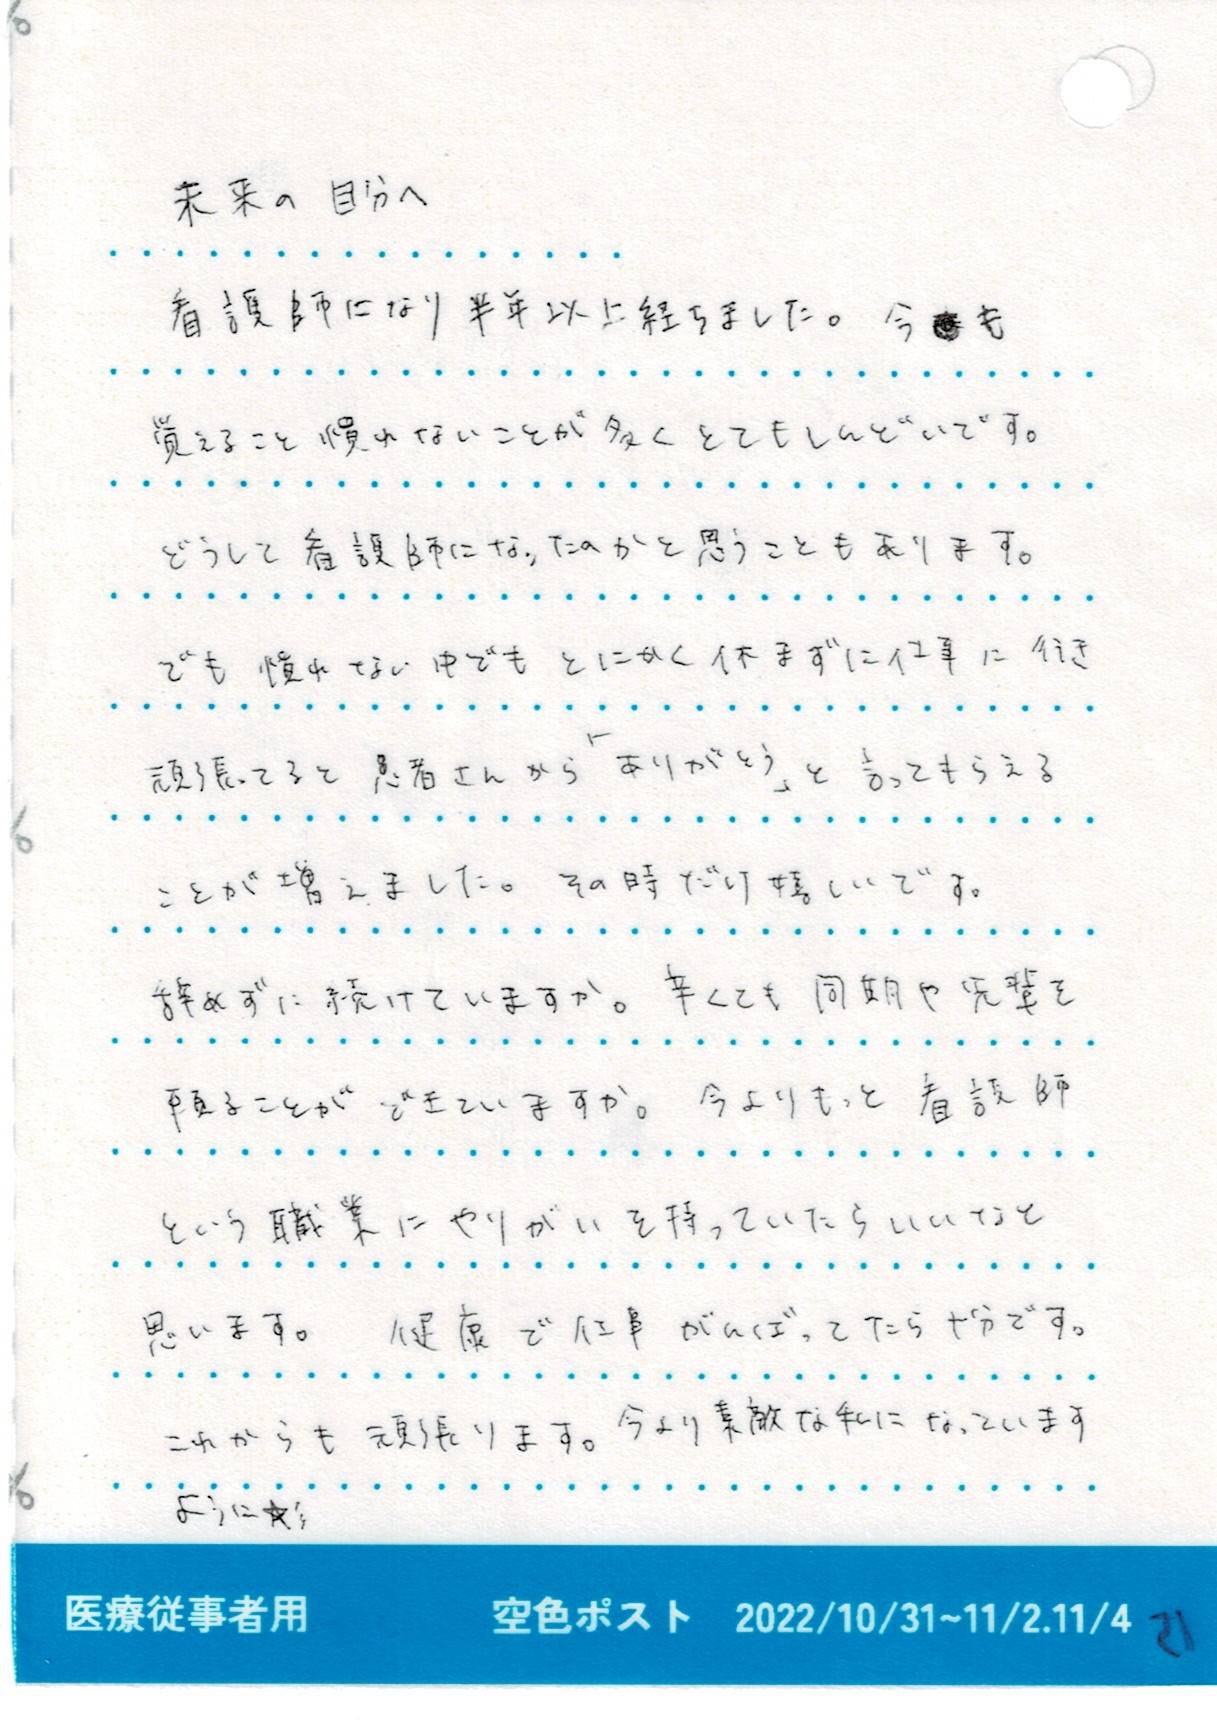 未来の自分へ
看護師になり半年以上経ちました。今も
覚えること慣れないことが多くとてもしんどいです。
どうして看護師になったのかと思うこともあります。
でも慣れない中でもとにかく休まずに仕事に行き
頑張ってると患者さんから「ありがとう」と言ってもらえる
ことが増えました。その時だけ嬉しいです。
辞めずに続けていますか。辛くても同期や先輩を
頼ることができていますか。今よりもっと看護師
という職業にやりがいを持っていたらいいなと
思います。 健康で仕事がんばってたら十分です。
これからも頑張ります。今より素敵な私になっています
ように☆彡
医療従事者用 空色ポスト 2022/10/31~11/2.11/4